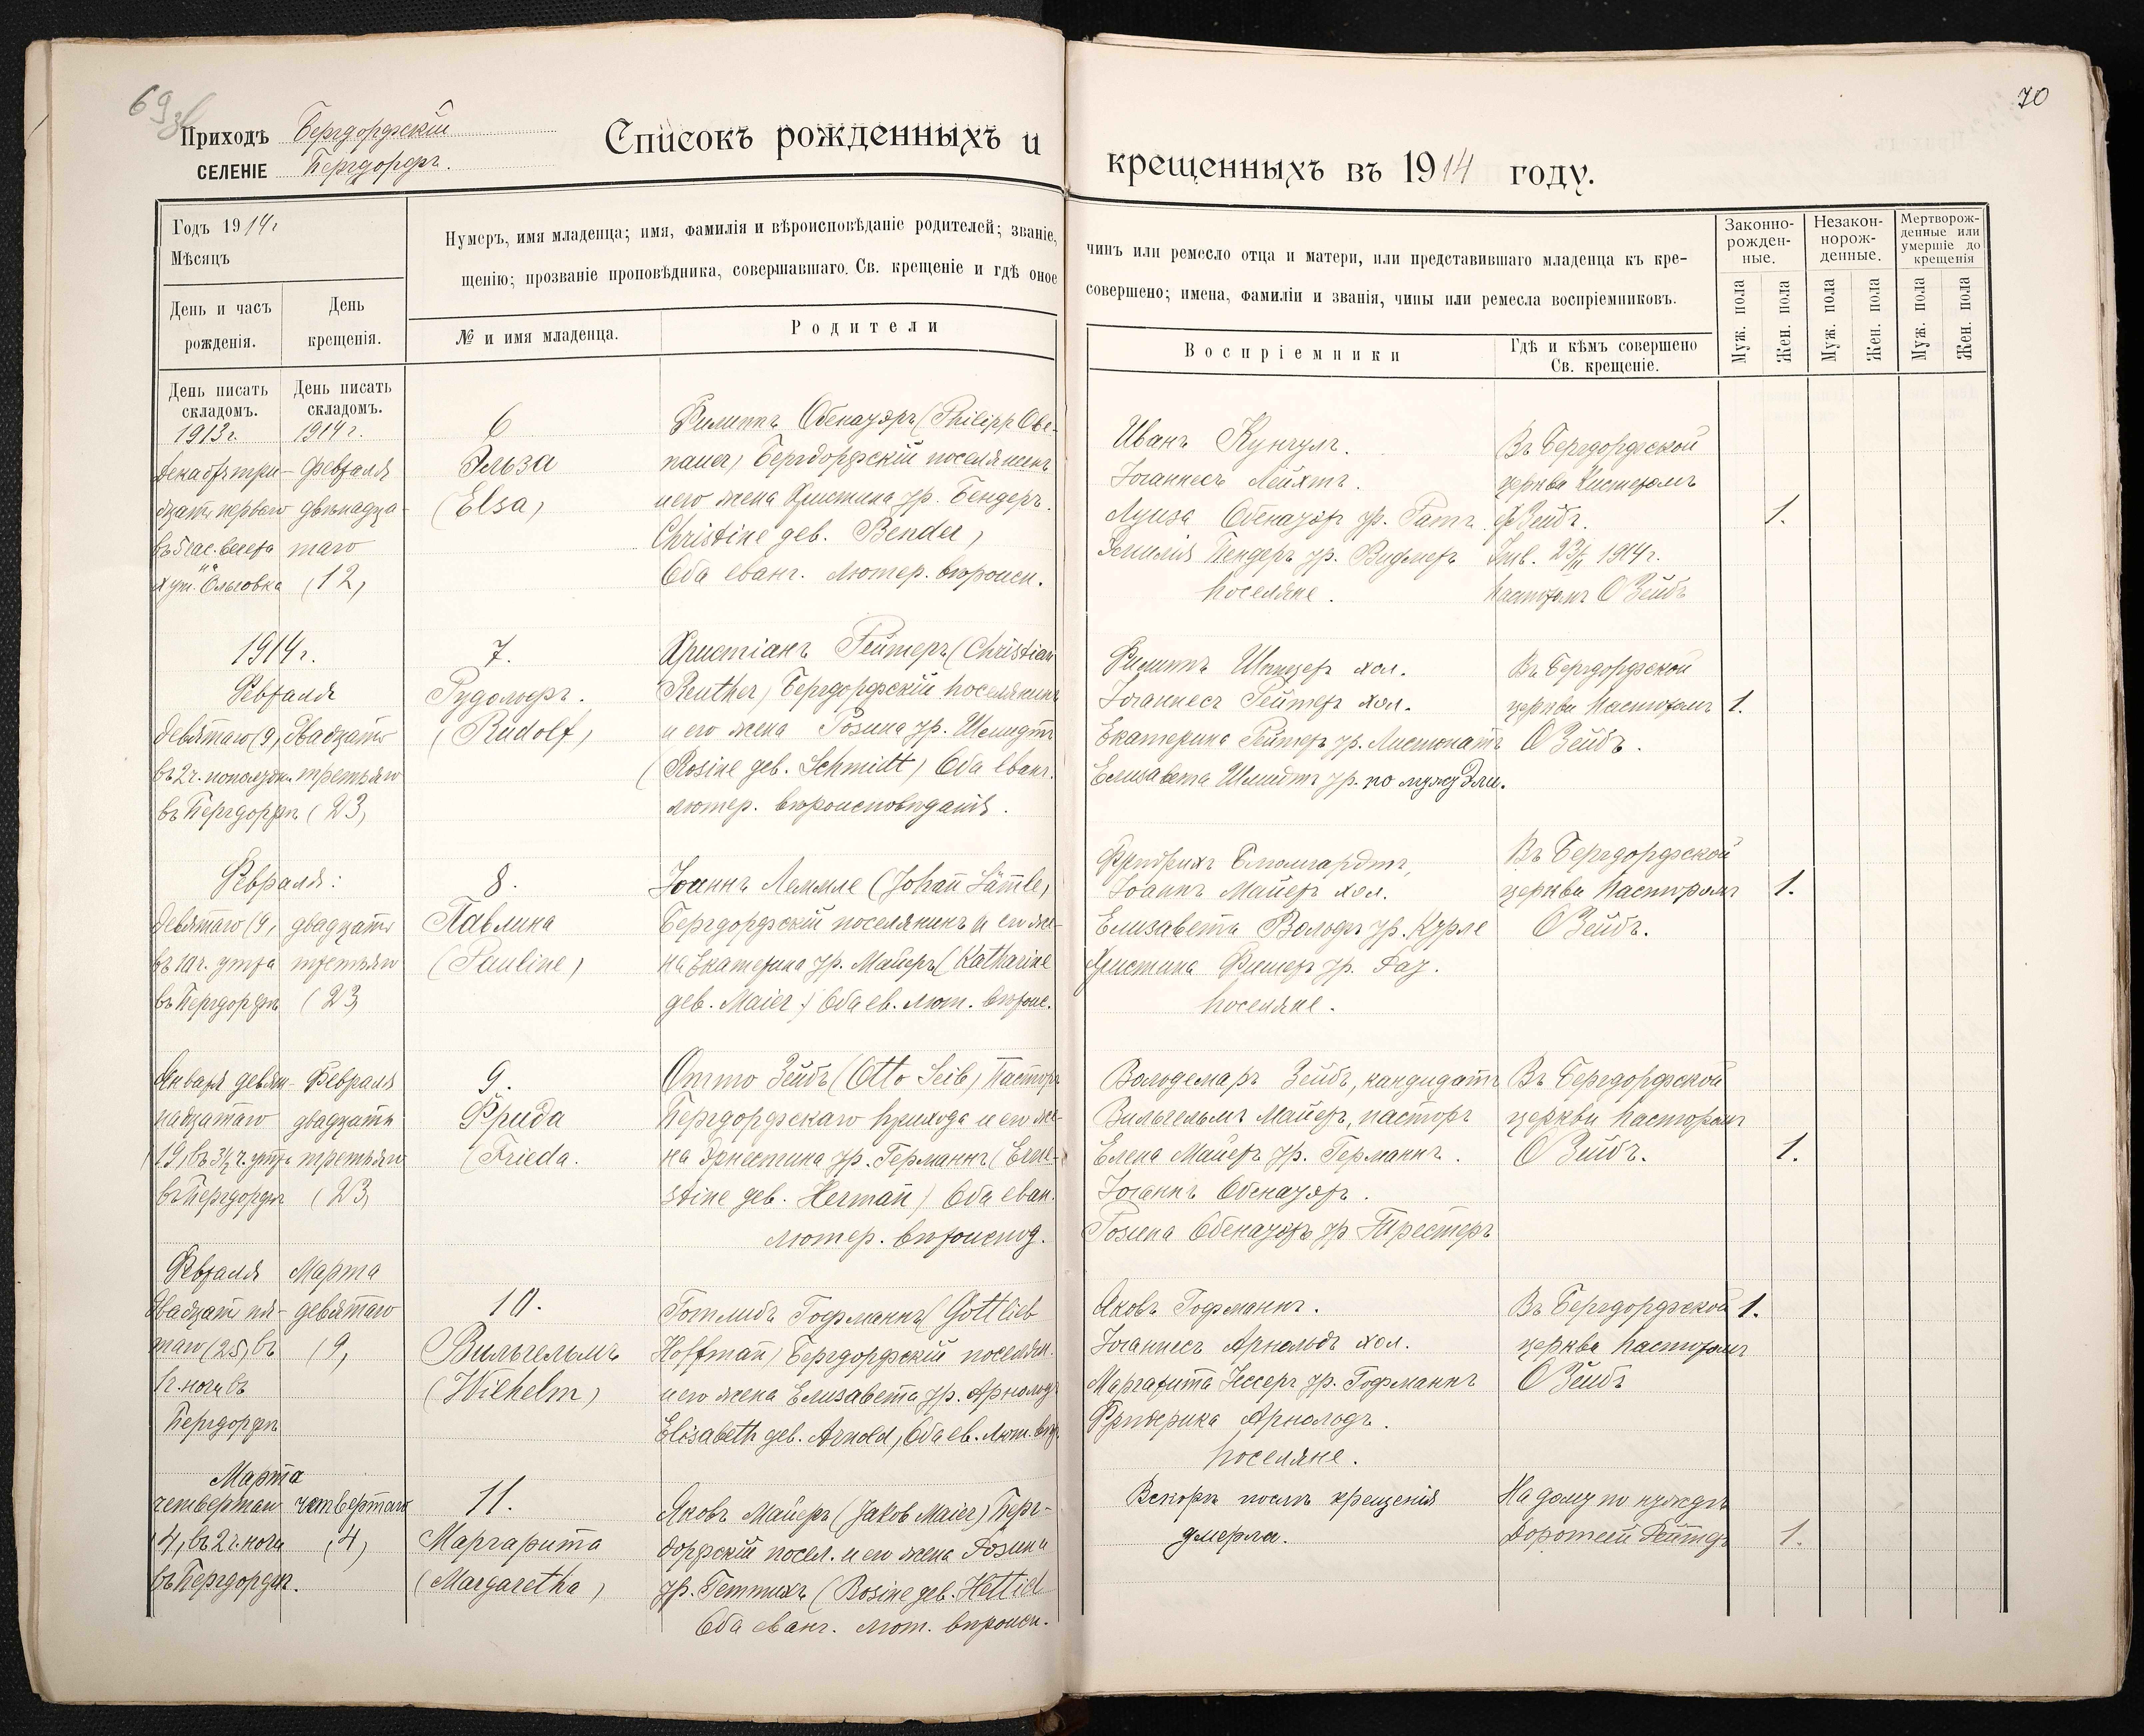 69 зв
Приходъ Бергдорфскій
СЕЛЕНІЕ Бергдорфъ.
Списокъ рожденныхъ и
Годъ 1914 г
Мѣсяцъ
Нумеръ, имя младенца; имя, фамилія и вѣроисповѣданіе родителей; званіе,
щенію; прозваніе проповѣдника, совершавшаго Св. крещеніе и гдѣ оное
День и часъ рожденія.
День крещенія.
№ и имя младенца.
Родители
День писать складомъ.
День писать складомъ.
1913 г.
1914 г.
Декабр. три-
дцать перваго
въ 5 час. вечера
хут. Ольговка
Февраля
двѣнадца-
таго
(12)
6
Эльза
(Elsa)
Филиппъ Обенауэръ (Philipp Obe-
nauer) Бергдорфскій поселянинъ
и его жена Христина ур. Бендеръ.
Christine geb. Bender)
Оба еванг. Лютер. вѣроисп.
1914 г.
Февраля
девятаго (9)
въ 2 ч. пополудн.
въ Бергдорфѣ
двадцать
третьяго
(23)
7.
Рудольфъ.
(Rudolf)
Христіанъ Рейтеръ (Christian
Reuther) Бергдорфскій поселянинъ
и его жена Розина ур. Шмидтъ
(Rosine geb. Schmidt) Оба еванг.
лютер. вѣроисповѣданія.
Февраля:
девятаго (9)
въ 10 ч. утра
въ Бергдорфѣ
двадцать
третьяго
(23)
8.
Павлина
(Pauline)
Іоаннъ Леммле (Johan̄ Läm̄le)
Бергдорфскій поселянинъ и его же-
на Екатерина ур. Майеръ (Katharine
geb. Maier) Оба ев. лют. вѣроис.
Января девят-
надцатаго
(19) въ 3½ ч. утра
въ Бергдорфѣ
Февраля
двадцать
третьяго
(23)
9.
Фрида
(Frieda.
Отто Зейбъ (Otto Seib) Пасторъ
Бергдорфскаго прихода и его же-
на Эрнестина ур. Германнъ (Erne-
stine geb. Herman̄) Оба еван.
лютер. вѣроиспов.
Февраля
двадцать пя-
таго (25) въ
1 ч. ночи въ
Бергдорфѣ
Марта
девятаго
(9)
10.
Вильгельмъ
(Wilhelm)
Готлибъ Гофманнъ (Gottlieb
Hoffman̄) Бергдорфскій поселян.
и его жена Елизавета ур. Арнольдъ
Elisabeth geb. Arnold) Оба ев. Лют. вѣр.
Марта
четвертаго
(4) въ 2 ч. ночи
въ Бергдорфѣ.
четвертаго
(4)
11.
Маргарита
(Margaretha)
Яковъ Майеръ (Jakob Maier) Берг-
дорфскій посел. и его жена Розина
ур. Геттихъ (Rosine geb. Hettich
Оба еванг. лют. вѣроисп.
70
крещенныхъ въ 1914 году.
чинъ или ремесло отца и матери, или представившаго младенца къ кре-
совершено; имена, фамиліи и званія, чины или ремесла воспріемниковъ.
Воспріемники
Гдѣ и кѣмъ совершено
Св. крещеніе.
Законно-
рожден-
ные.
Незакон-
норож-
денные.
Мертворож-
денные или
умершіе до
крещенія
Муж. пола
Жен. пола
Муж. пола
Жен. пола
Муж. пола
Жен. пола
Иванъ
Іоганнесъ Лейхтъ.
Луиза Обенауэръ ур. Ратъ
Эмилія Бендеръ ур. Видмеръ
поселяне.
Въ Бергдорфской
церкви Кистеромъ
Утв. 23/II 1914 г.
пасторъ О Зейбъ
1.
Филиппъ хол.
Іоганнесъ Рейтеръ хол.
Екатерина Рейтеръ ур.
Елизавета Шмидтъ ур. по мужу
Въ Бергдорфской
церкви пасторомъ
О Зейбъ.
1.
Фридрихъ
Іоаннъ Майеръ хол.
Елизавета Вольфъ ур. Курле
Христина Фишеръ ур.
поселяне.
Въ Бергдорфской
церкви пасторомъ
О Зейбъ.
1.
Вольдемаръ Зейбъ, кандидатъ
Вильгельмъ Майеръ, пасторъ
Елена Майеръ ур. Германнъ.
Іоганнъ Обенауэръ.
Розина Обенауэръ ур Трестеръ
Въ Бергдорфской
церкви пасторомъ
О Зейбъ.
1.
Яковъ Гофманнъ.
Іоганнесъ Арнольдъ хол.
Маргарита ур. Гофманнъ
Фридерика Арнольдъ.
поселяне.
Въ Бергдорфской
церкви пасторомъ
О Зейбъ
1.
Вскорѣ послѣ крещенія
умерла.
На дому по нуждѣ
Доротеей
1.